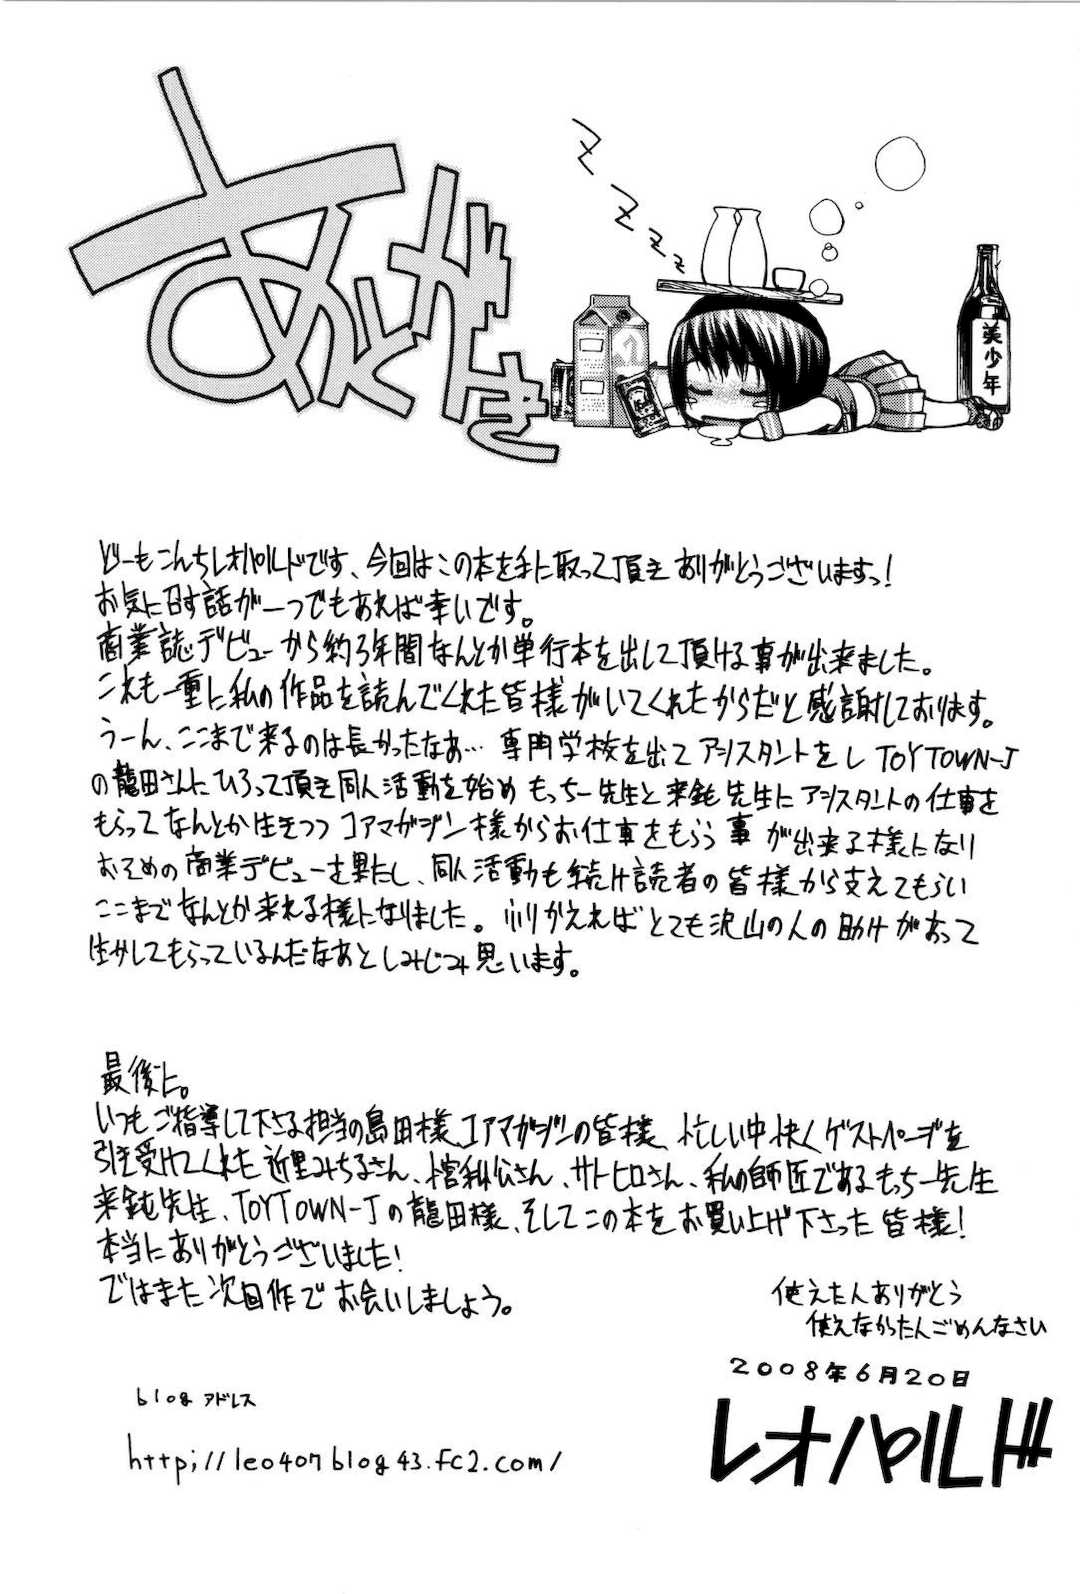 あとがき
Z Z Z Z Z
美少年
どーもこんちレオパルドです、今回はこの本を手に取って頂き ありがとうございますっ!
お気に召す話が一つでもあれば幸いです。
商業誌デビューから約3年間なんとか単行本を出して頂ける事が出来ました。
これも一重に私の作品を読んでくれた皆様がいてくれたからだと感謝しております。
うーん、ここまで来るのは長かったなぁ… 専門学校を出てアシスタントをし TOYTOWN-J
の龍田さんにひろって頂き同人活動を始め もっちー先生と来鈍先生にアシスタントの仕事を
もらってなんとか生きつつ コアマガジン様からお仕事をもらう事が出来る様になり
おそめの商業デビューを果たし、同人活動も続け読者の皆様から支えてもらい
ここまでなんとか来れる様になりました。ふりかえればとても沢山の人の助けがあって
生かしてもらっているんだなあとしみじみ思います。
最後に。
いつもご指導して下さる担当の島田様、コアマガジンの皆様、忙しい中快くゲストページを
引き受けてくれた近里みちるさん、椿秋松さん、サトヒロさん、私の師匠であるもっちー先生
来鈍先生、TOYTOWN-Jの龍田様、そしてこの本をお買い上げ下さった皆様!
本当にありがとうございました!
ではまた次回作でお会いしましょう。
使えた人ありがとう
使えなかった人ごめんなさい
2008年6月20日
レオパルド
blog アドレス
http;//leo407blog43.fc2.com/